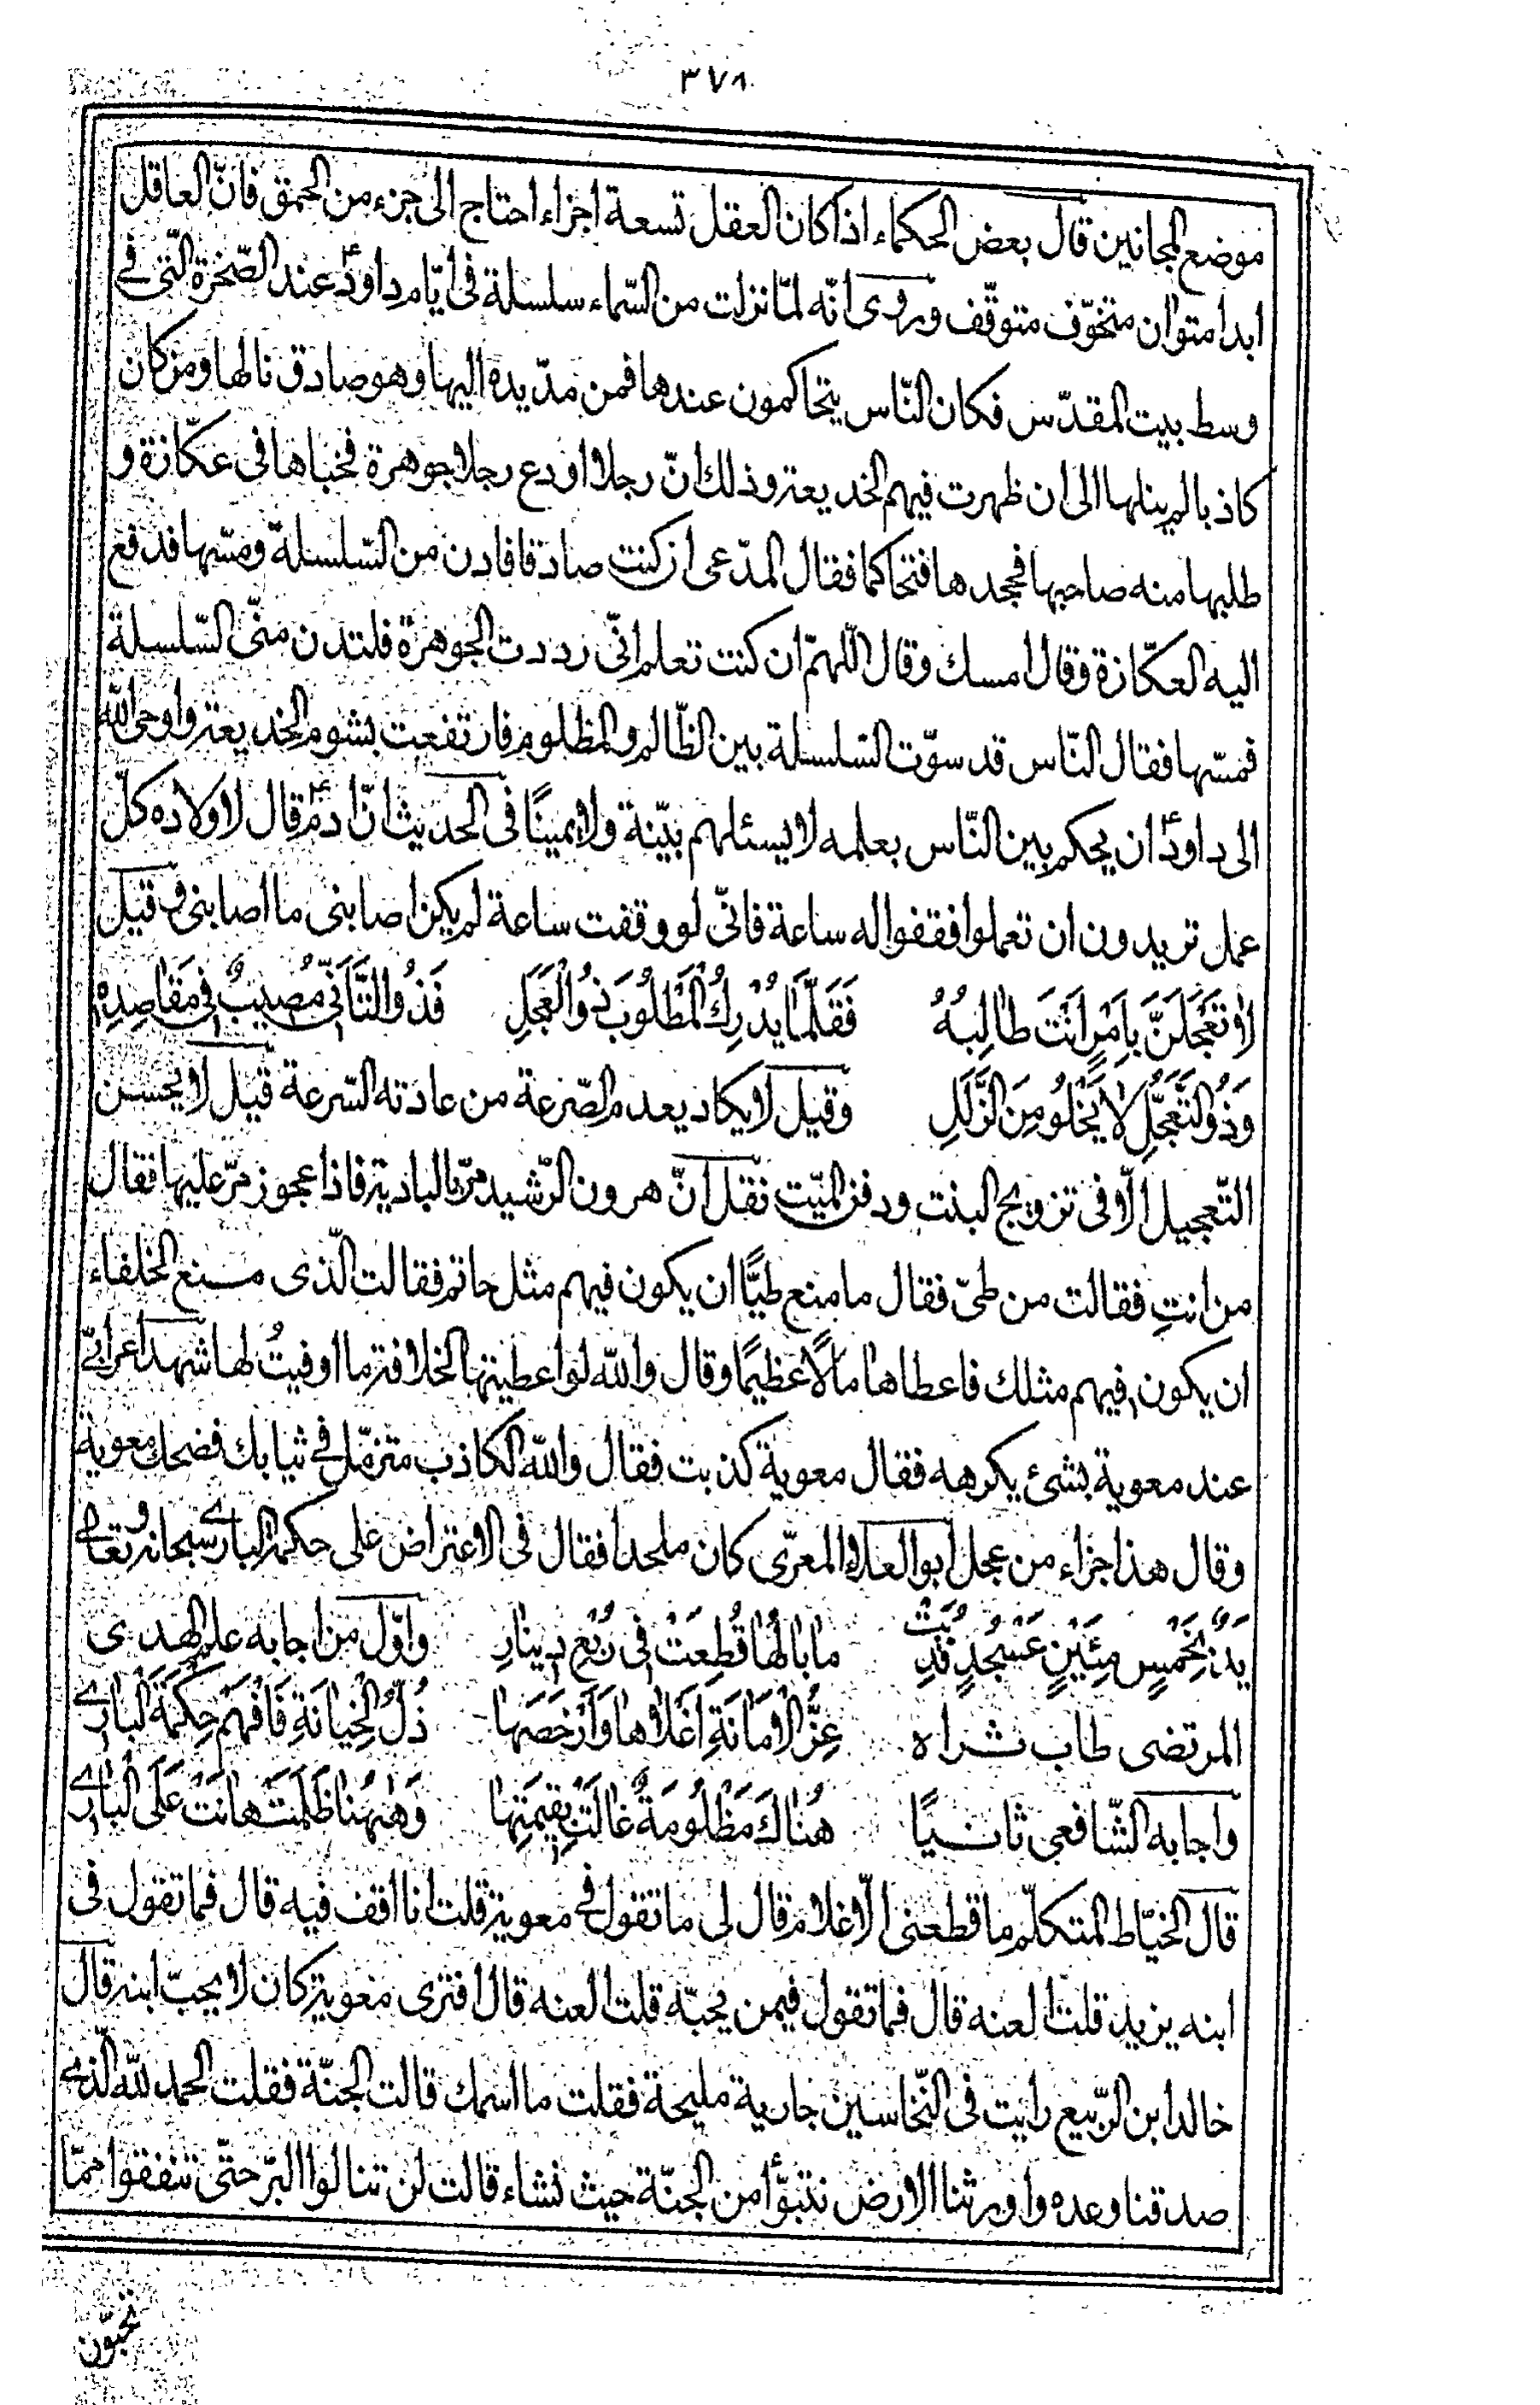 ٣٧٨
موضع المجانين قال بعض الحكماء اذا كان العقل تسعة اجزاء احتاج الى جزء من الحمق فانّ العاقل
ابدا متوان متخوّف متوقّف وروى انّه لمّا نزلت من السّماء سلسلة فى ايّام داودؑ عند الصّخرة الّتى فے
وسط بيت المقدّس فكان النّاس يتحاكمون عندها فمن مدّ يده اليها وهو صادق نالها ومن كان
كاذبا لم ينلها الى ان ظهرت فيهم الخديعة وذلك انّ رجلا اودع رجلا جوهرة فخباها فى عكّازة و
طلبها منه صاحبها فجحدها فتحاكما فقال المدّعى ان كنت صادقا فادن من السّلسلة ومسّها فدفع
اليه العكّازة وقال امسك وقال اللّهمّ ان كنت تعلم انّى رددت الجوهرة فلتدن منّى السّلسلة
فمسّها فقال النّاس قد سوّت السّلسلة بين الظّالم والمظلوم فارتفعت بشوم الخديعة واوحى اللّه
الى داودؑ ان يحكم بين النّاس بعلمه لا يسئلهم بيّنة ولا يمينًا فى الحديث انّ ادمؑ قال لاولاده كلّ
عمل تريدون ان تعملوا فقفوا له ساعة فانّى لو وقفت ساعة لم يكن اصابنى ما اصابنى و قيل
لاٰ تَعْجَلَنَّ بِاَمْرٍ اَنْتَ طاٰلِبُهُ فَقَلَّمٰا يُدْرِكُ الْمَطْلُوبَ ذُو الْعَجَلِ فَذُو التَّأَنِّى مُصيبٌ فى مَقاٰصِدِهِ
وَذُو التَّعَجُّلِ لاٰ يَخْلُو مِنَ الزَّلَلِ وقيل لا يكاد يعدم الصّرعة من عادته السّرعة قيل لا يحسن
التّعجيل الّا فى تزويج البنت ودفن الميّت نقل انّ هرون الرّشيد مرّ بالبادية فاذا عجوز مرّ عليها فقال
من انتِ فقالت من طىّ فقال ما منع طيًّا ان يكون فيهم مثل حاتم فقالت الّذى منع الخلفاء
ان يكون فيهم مثلك فاعطاها مالًا عظيمًا وقال واللّه لو اعطيتها الخلافة ما اوفيتُ لها شهد اعرابىّ
عند معوية بشئ يكرهه فقال معوية كذبت فقال واللّه الكاذب متزمّل فے ثيابك فضحك معوية
وقال هذا جزاء من عجل ابو العلاء المعرّى كان ملحدا فقال فى الاعتراض على حكمة البارے سبحانه و تعالى
يَدٌ بِخَمْسٍ مِئَيْنٍ عَسْجُدٍ فُدِيَتْ مابالُهٰا قُطِعَتْ فى رُبْعِ دينارِ واوّل من اجابه علم الهدى
المرتضى طاب ثراه عِزُّ الْاَمٰانَةِ اَغْلاٰهٰا وَاَرْخَصَهٰا ذُلُّ الْخِيٰانَةِ فَافْهَمْ حِكْمَةَ الْبارے
واجابه الشّافعى ثانيًا هُناكَ مَظْلُومَةٌ غالَتْ بِقيمَتِهٰا وَهٰهُنٰا ظَلَمَتْ هانَتْ عَلَى الْبارے
قال الخيّاط المتكلّم ما قطعنى الّا غلام قال لى ما تقول فے معوية قلت انا اقف فيه قال فما تقول فى
ابنه يزيد قلت العنه قال فما تقول فيمن يحبّه قلت العنه قال افترى معوية كان لا يحبّ ابنه قال
خالد ابن الرّبيع رايت فى النّخّاسين جارية مليحة فقلت ما اسمك قالت الجنّة فقلت الحمد للّه الّذے
صدقنا وعده واورثنا الارض نتبوّأ من الجنّة حيث نشاء قالت لن تنالوا البرّ حتّى تنفقوا ممّا
تحبّون